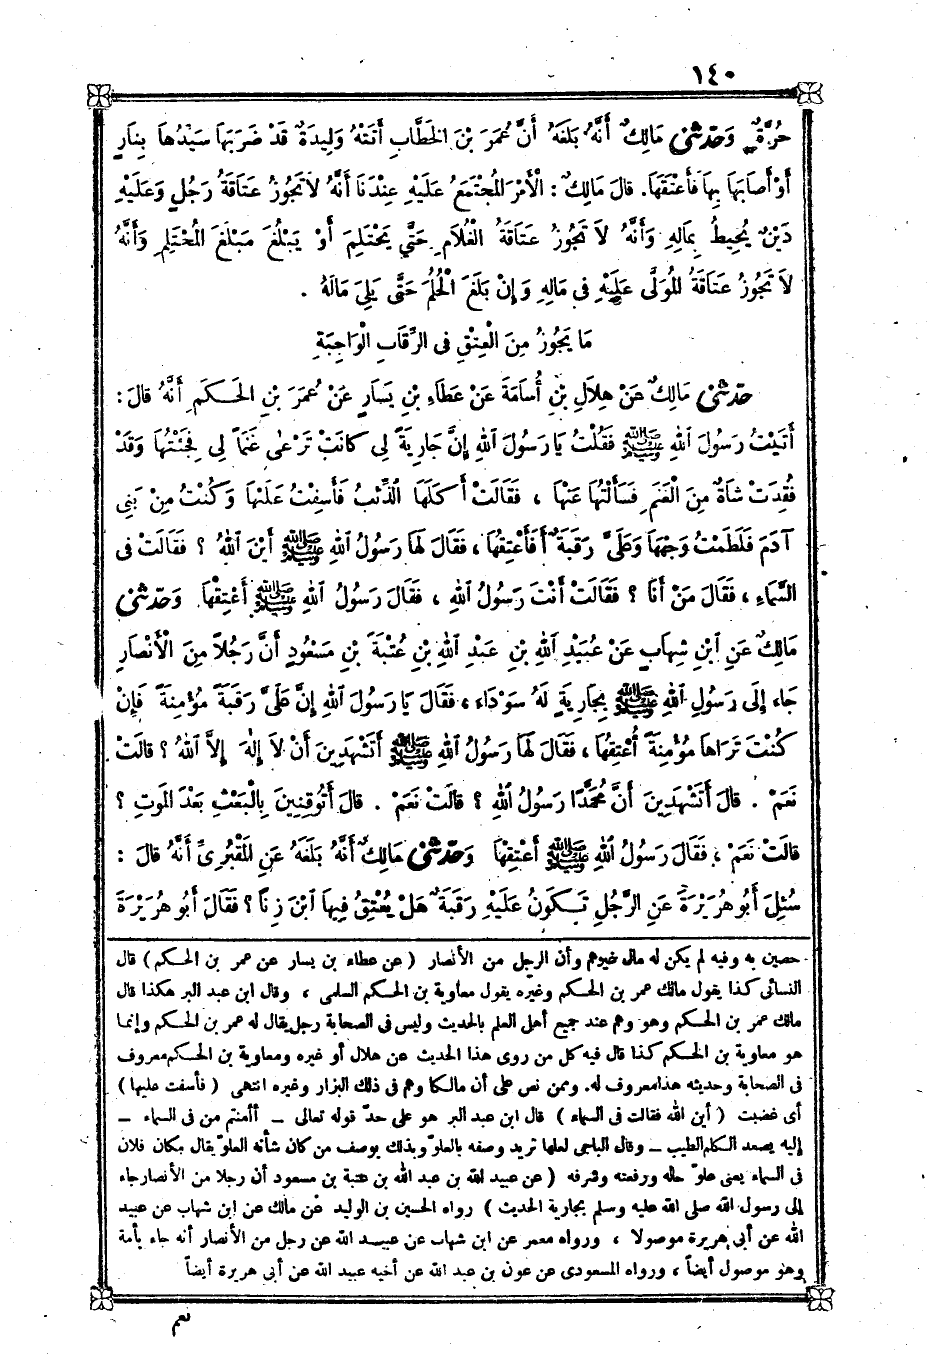 ١٤٠
حُرَّةٌ وَحَدَّثَنِي مَالِكٌ أَنَّهُ بَلَغَهُ أَنَّ عُمَرَ بْنَ الْخَطَّابِ أَتَتْهُ وَلِيدَةٌ قَدْ ضَرَبَهَا سَيِّدُهَا بِنَارٍ
أَوْ أَصَابَهَا بِهَا فَأَعْتَقَهَا. قَالَ مَالِكٌ : الْأَمْرُ الْمُجْتَمَعُ عَلَيْهِ عِنْدَنَا أَنَّهُ لَا تَجُوزُ عَتَاقَةُ رَجُلٍ وَعَلَيْهِ
دَيْنٌ يُحِيطُ بِمَالِهِ وَأَنَّهُ لَا تَجُوزُ عَتَاقَةُ الْغُلَامِ حَتَّى يَحْتَلِمَ أَوْ يَبْلُغَ مَبْلَغَ الْمُحْتَلِمِ وَأَنَّهُ
لَا تَجُوزُ عَتَاقَةُ الْمُوَلَّى عَلَيْهِ فِي مَالِهِ وَإِنْ بَلَغَ الْحُلُمَ حَتَّى يَلِيَ مَالَهُ .
مَا يَجُوزُ مِنَ الْعِتْقِ فِي الرِّقَابِ الْوَاجِبَةِ
حَدَّثَنِي مَالِكٌ عَنْ هِلَالِ بْنِ أُسَامَةَ عَنْ عَطَاءِ بْنِ يَسَارٍ عَنْ عُمَرَ بْنِ الْحَكَمِ أَنَّهُ قَالَ :
أَتَيْتُ رَسُولَ اللهِ ﷺ فَقُلْتُ يَا رَسُولَ اللهِ إِنَّ جَارِيَةً لِي كَانَتْ تَرْعَى غَنَمًا لِي فَجِئْتُهَا وَقَدْ
فُقِدَتْ شَاةٌ مِنَ الْغَنَمِ فَسَأَلْتُهَا عَنْهَا ، فَقَالَتْ أَكَلَهَا الذِّئْبُ فَأَسِفْتُ عَلَيْهَا وَكُنْتُ مِنْ بَنِي
آدَمَ فَلَطَمْتُ وَجْهَهَا وَعَلَيَّ رَقَبَةٌ أَفَأُعْتِقُهَا ، فَقَالَ لَهَا رَسُولُ اللهِ ﷺ أَيْنَ اللهُ ؟ فَقَالَتْ فِي
السَّمَاءِ ، فَقَالَ مَنْ أَنَا ؟ فَقَالَتْ أَنْتَ رَسُولُ اللهِ ، فَقَالَ رَسُولُ اللهِ ﷺ أَعْتِقْهَا . وَحَدَّثَنِي
مَالِكٌ عَنِ ابْنِ شِهَابٍ عَنْ عُبَيْدِ اللهِ بْنِ عَبْدِ اللهِ بْنِ عُتْبَةَ بْنِ مَسْعُودٍ أَنَّ رَجُلًا مِنَ الْأَنْصَارِ
جَاءَ إِلَى رَسُولِ اللهِ ﷺ بِجَارِيَةٍ لَهُ سَوْدَاءَ ، فَقَالَ يَا رَسُولَ اللهِ إِنَّ عَلَيَّ رَقَبَةً مُؤْمِنَةً فَإِنْ
كُنْتَ تَرَاهَا مُؤْمِنَةً أُعْتِقُهَا ، فَقَالَ لَهَا رَسُولُ اللهِ ﷺ أَتَشْهَدِينَ أَنْ لَا إِلٰهَ إِلَّا اللهُ ؟ قَالَتْ
نَعَمْ . قَالَ أَتَشْهَدِينَ أَنَّ مُحَمَّدًا رَسُولُ اللهِ ؟ قَالَتْ نَعَمْ . قَالَ أَتُوقِنِينَ بِالْبَعْثِ بَعْدَ الْمَوْتِ ؟
قَالَتْ نَعَمْ ، فَقَالَ رَسُولُ اللهِ ﷺ أَعْتِقْهَا وَحَدَّثَنِي مَالِكٌ أَنَّهُ بَلَغَهُ عَنِ الْمَقْبُرِيِّ أَنَّهُ قَالَ :
سُئِلَ أَبُو هُرَيْرَةَ عَنِ الرَّجُلِ تَكُونُ عَلَيْهِ رَقَبَةٌ هَلْ يُعْتِقُ فِيهَا ابْنَ زِنًا ؟ فَقَالَ أَبُو هُرَيْرَةَ
حصين به وفيه لم يكن له مال غيرهم وأن الرجل من الأنصار ( عن عطاء بن يسار عن عمر بن الحكم ) قال
النسائى كذا يقول مالك عمر بن الحكم وغيره يقول معاوية بن الحكم السلمى ، وقال ابن عبد البر هكذا قال
مالك عمر بن الحكم وهو وهم عند جميع أهل العلم بالحديث وليس فى الصحابة رجل يقال له عمر بن الحكم وإنما
هو معاوية بن الحكم كذا قال فيه كل من روى هذا الحديث عن هلال أو غيره ومعاوية بن الحكم معروف
فى الصحابة وحديثه هذا معروف له. وممن نص على أن مالكا وهم فى ذلك البزار وغيره انتهى ( فأسفت عليها )
أى غضبت ( أين الله فقالت فى السماء ) قال ابن عبد البر هو على حدّ قوله تعالى – أأمنتم من فى السماء –
إليه يصعد الكلم الطيب – وقال الباجى لعلها تريد وصفه بالعلوّ وبذلك يوصف من كان شأنه العلوّ يقال مكان فلان
فى السماء يعنى علوّ حاله ورفعته وشرفه ( عن عبيد الله بن عبد الله بن عتبة بن مسعود أن رجلا من الأنصار جاء
إلى رسول الله صلى الله عليه وسلم بجارية الحديث ) رواه الحسين بن الوليد عن مالك عن ابن شهاب عن عبيد
الله عن أبى هريرة موصولا ، ورواه معمر عن ابن شهاب عن عبيد الله عن رجل من الأنصار أنه جاء بأمة
وهو موصول أيضاً ، ورواه المسعودى عن عون بن عبد الله عن أخيه عبيد الله عن أبى هريرة أيضاً
نعم